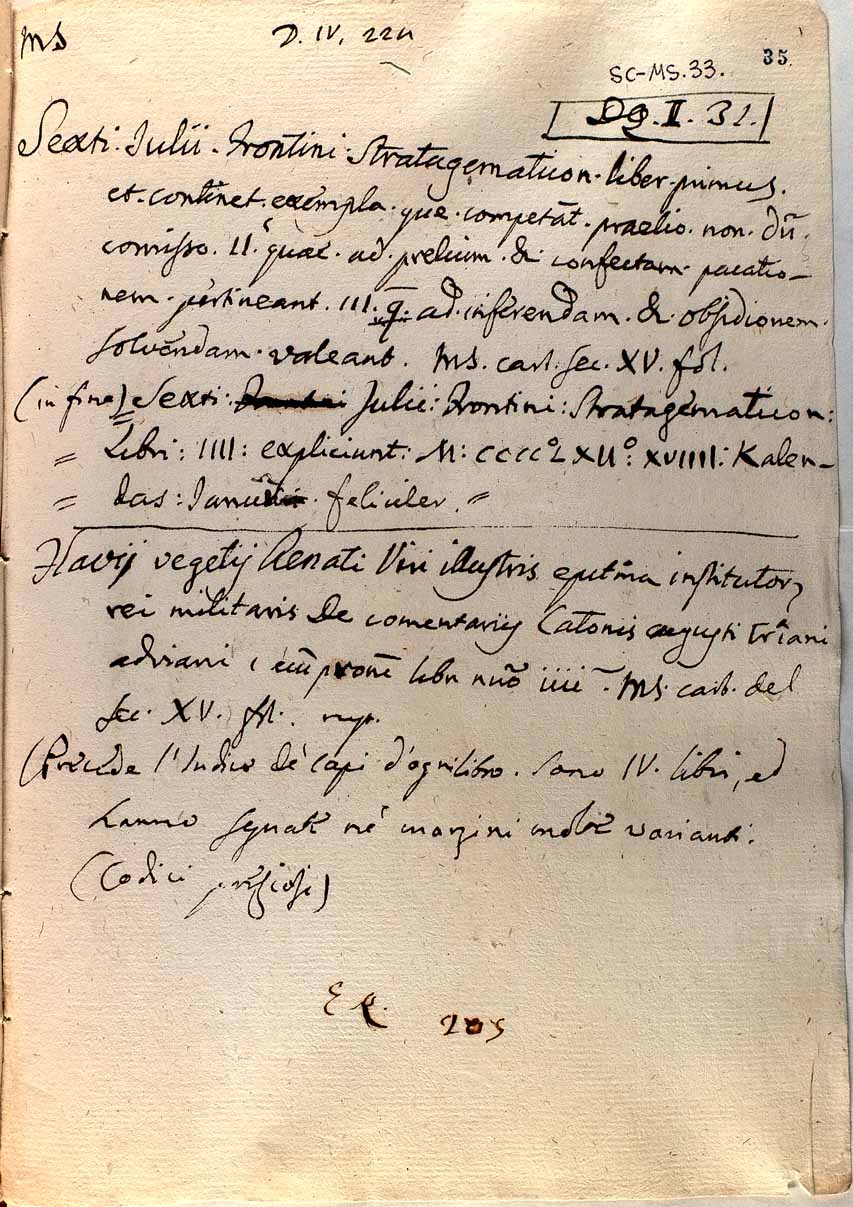 MS D. IV. 22
35.
SC-MS.33.
Dg. II. 31.
Sexti. Julii. Frontini. Stratagematicon. liber. primus.
et. continet. exempla. que. competāt. praelio. non. dū.
comisso. II. quae. ad. prelium. & confectam. pacatio-
nem. pertineant. III. q̄. ad. inferendam. & obsidionem.
solvendam. valeant. MS. cart. sec. XV. fol.
(in fine) Sexti: Julii: Frontini: Stratagematicon:
= Libri: IIII: expliciunt: M: CCCC°LXII°: XVIIII: Kalen-
= das: feliciter. =
Flavij vegetij Renati Viri illustris institutor
rei militaris De comentariis Catonis augusti Traiani
adriani libri nuō iiii MS. cart. del
sec. XV. fol.
(Precede l'Indice de' capi d'ogni libro. Sono IV. libri, ed
hanno segnate ne' margini molte varianti.
(Codici preziosi)
E R. 205